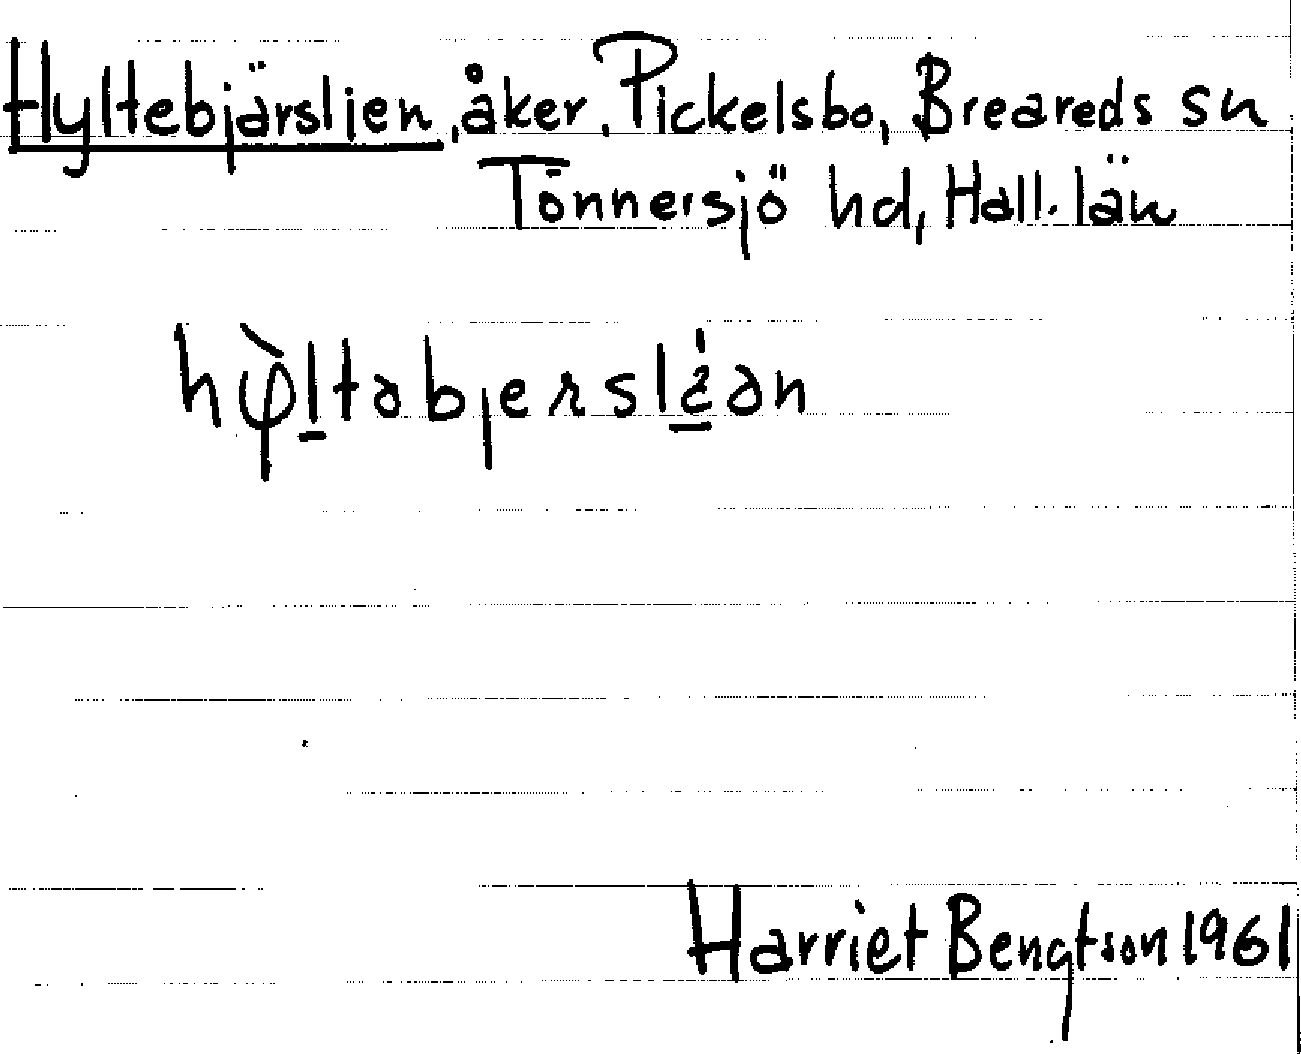 Hyltebjärslien, åker, Pickelsbo, Breareds sn
Tönnersjö hd, Hall. län
hφ̀l̲təbjerslé̲ən
Harriet Bengtson 1961